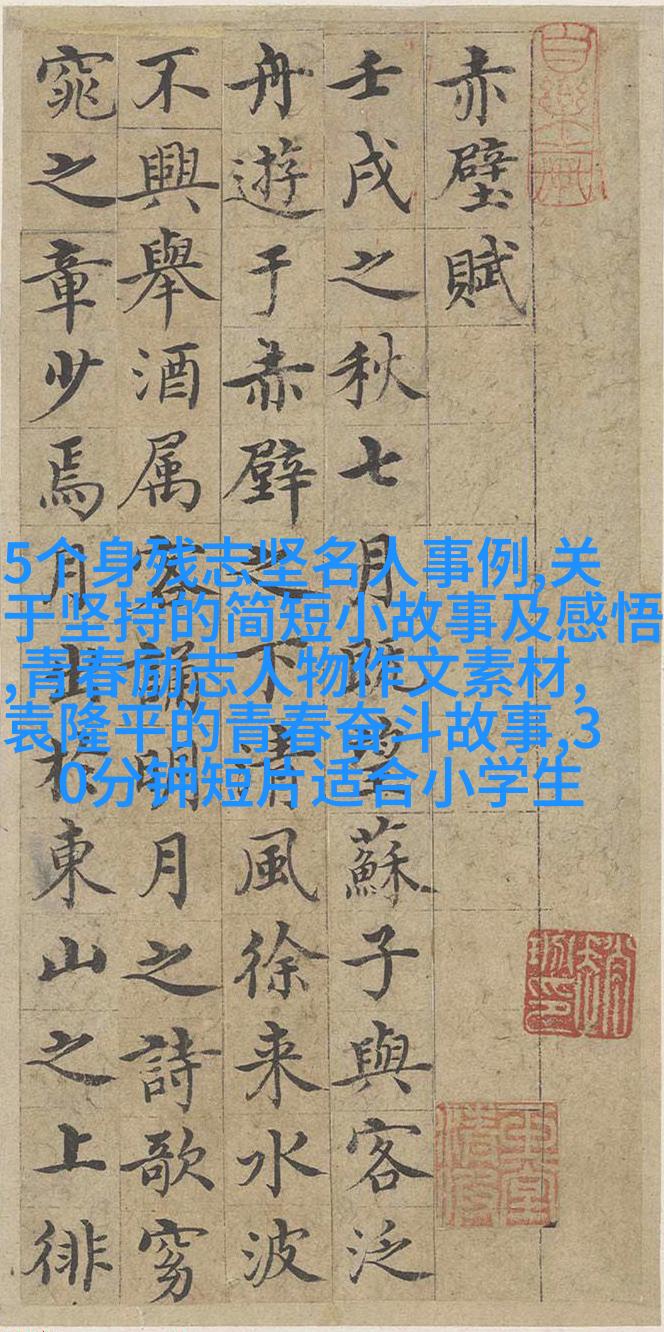 赤壁賦
壬戌之秋七月既望蘇子與客泛
舟遊于赤壁之下清風徐来水波
不興舉酒属客誦明月之詩歌窈
窕之章少焉月出於東山之上徘
5个身残志坚名人事例,关
于坚持的简短小故事及感悟
,青春励志人物作文素材,
袁隆平的青春奋斗故事,3
0分钟短片适合小学生